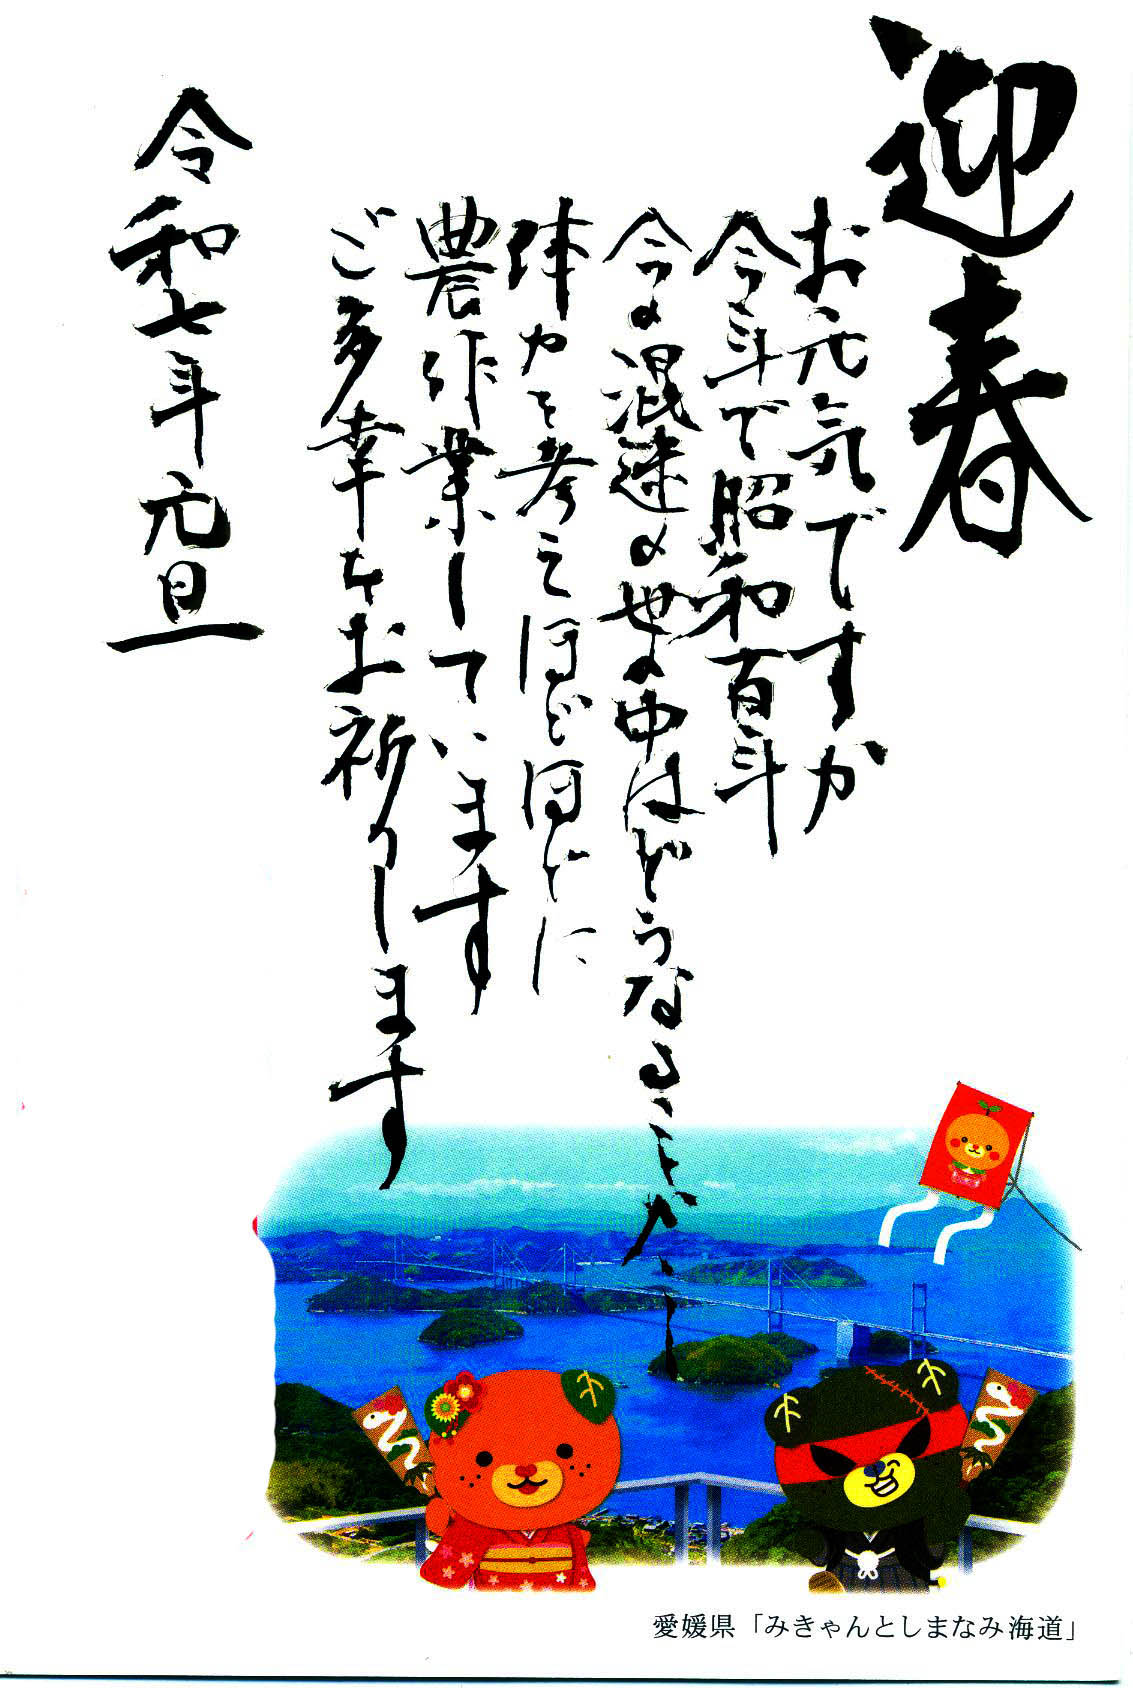 迎春
お元気ですか
今年で昭和百年
今の混迷の世の中はどうなることか・・・
体力を考えほどほどに
農作業しています
ご多幸をお祈りします
令和七年元旦
愛媛県「みきゃんとしまなみ海道」